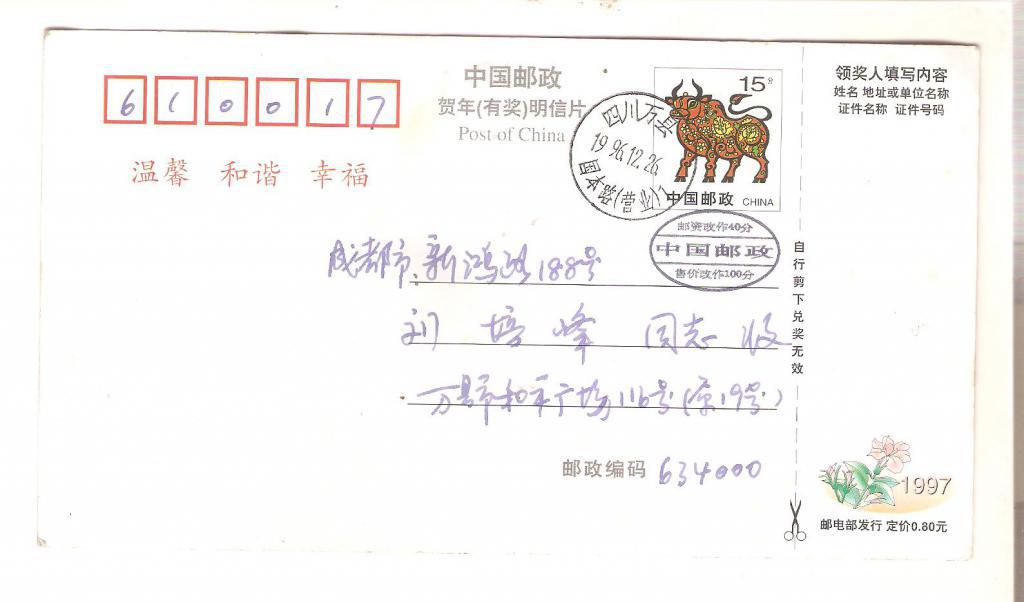 610017
温馨 和谐 幸福
中国邮政
贺年(有奖)明信片
Post of China
15分
中国邮政 CHINA
四川万县
1996.12.26
国本路(营业)
邮资改作40分
中国邮政
售价改作100分
成都市新鸿路188号
刘培峰 同志 收
万县市和平广场116号(原19号)
邮政编码 634000
自行剪下兑奖无效
领奖人填写内容
姓名 地址或单位名称
证件名称 证件号码
1997
邮电部发行 定价0.80元